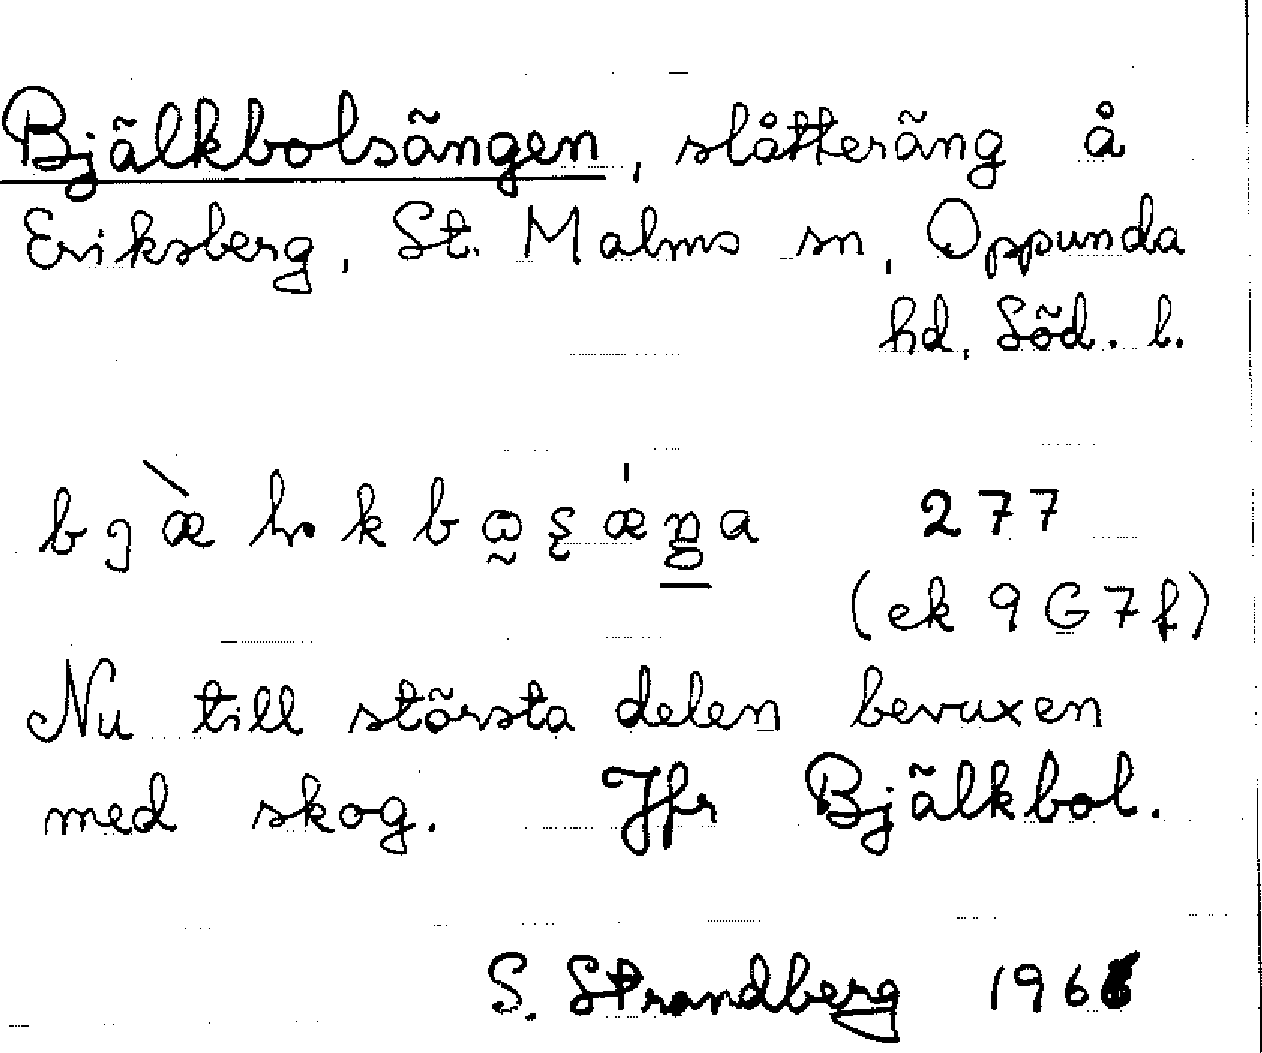 Bjälkbolsängen, slåtteräng å
Eriksberg, St. Malms sn, Oppunda
hd, Söd. l.
277
(ek 9 G 7 f)
Nu till största delen bevuxen
med skog. Jfr Bjälkbol.
S. Strandberg